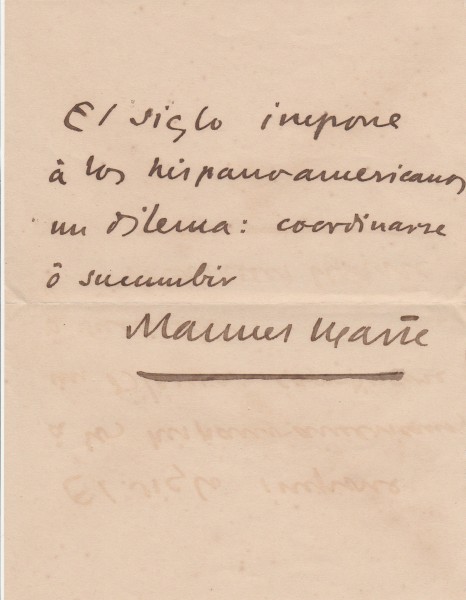 El siglo impone
á los hispano-americanos
un dilema: coordinarse
ó sucumbir
Manuel Ugarte